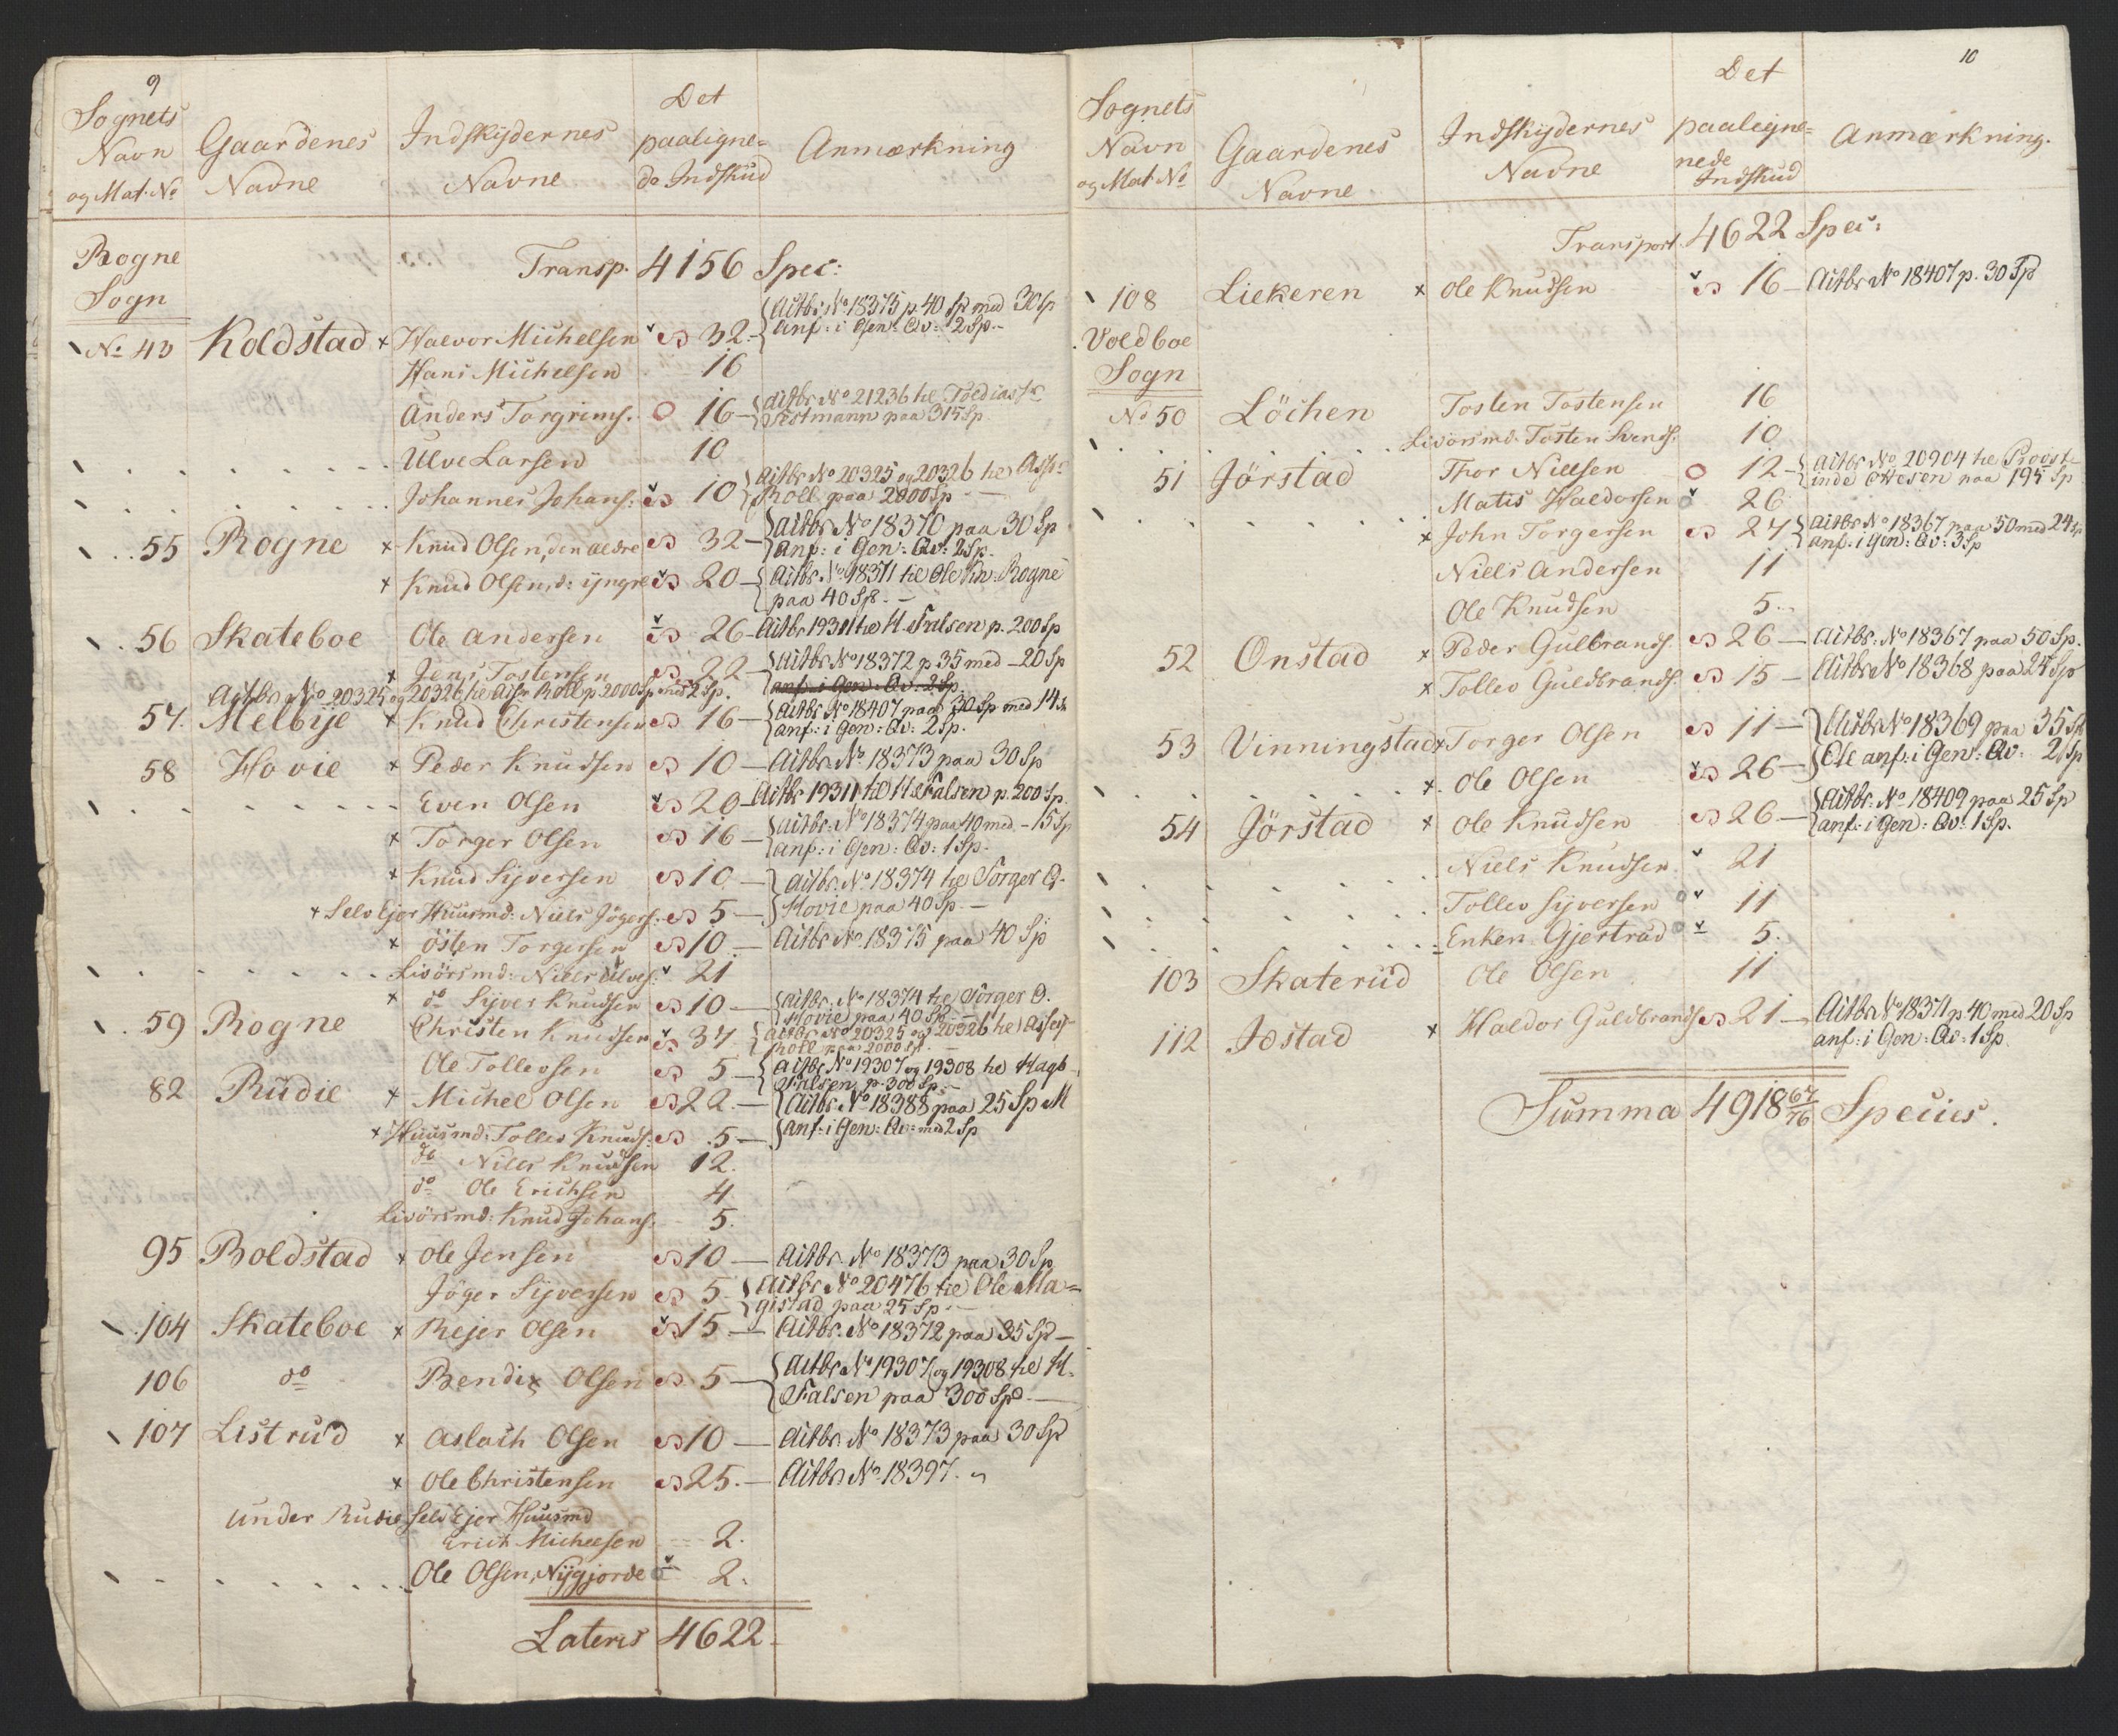 9
Sognets Navn og Mat. No | Gaardenes Navne | Indskydernes Navne | Det paaligne= de Indskud | Anmærkning
Rogne Sogn
Transp. 4156 Spec:
No 43 Koldstad × Halvor Michelsen 32.– Actbr: No 18375 p. 40 Sp med 30 Sp
anf: i Gen: Qv: 2 Sp.–
Hans Michelsen 16
Anders Torgrims. 16– Actbr No 21236 til
paa 315 Sp.
Ulve Larsen 10
Johannes Johans: 10 Actbr No 20325 og 20326 til Ass:
Roll paa 2000 Sp –
55 Rogne × Knud Olsen, den ældre 32– Actbr No 18370 paa 30 Sp
anf: i Gen: Qv: 2 Sp.
× Knud Olsen, d: yngre 20– Actbr. No 18371 til Ole Kn: Rogne
paa 40 Sp. –
56 Skateboe Ole Andersen 26– Actbr 19311 til H. Falsen p. 200 Sp
× Jens Tostensen 22– Actbr No 18372 p 35 med – 20 Sp
anf: i Gen: Qv: 2 Sp.
Actbr No 20325 og 20326 til Ass. Roll p 2000 Sp med 2 Sp.
57. Melbye × Knud Christensen 16– Actbr No 18407 paa 30 Sp med 14
anf: i Gen: Qv: 2 Sp.
58 Hovie × Peder Knudsen 10– Actbr No 18373 paa 30 Sp
Even Olsen 20– Actbr 19311 til H Falsen p. 200 Sp.
× Torger Olsen 16– Actbr. No 18374 paa 40 med – 15 Sp
anf: i Gen: Qv: 1 Sp.
× Knud Syversen 10.– Actbr. No 18374 til Torger O.
× Selv Ejer Huusmd: Niels Jögers. 5– Hovie paa 40 Sp. –
× Östen Torgersen 10.– Actbr No 18375 paa 40 Sp
Livörsmd: Niels Ulves: 21
× do Syver Knudsen 10– Actbr. No 18374 til Torger O.
Hovie paa 40 Sp
59 Rogne Christen Knudsen 37. Actbr No 20325 og 20326 til Assess
Roll paa 2000 Sp. –
Ole Tollevsen 5– Actbr No 19307 og 19308 til Hagb.
Falsen p. 300 Sp –
82 Rudie × Michel Olsen 22.– Actbr. No 18388 paa 25 Sp M
× Huusmd: Tollev Knuds: 5– anf: i Gen: Qv: med 2 Sp
do Niels Knudsen 12.
do Ole Erichsen 4
Livörsmd: Knud Johans. 5.
95 Boldstad × Ole Jensen 10– Actbr No 18373 paa 30 Sp
Jöger Syversen 5– Actbr No 20476 til Ole Ma=
gistad paa 25 Sp. –
104 Skateboe × Rejer Olsen 15– Actbr. No 18372 paa 35 Sp –
106 do Bendix Olsen 5– Actbr No 19307 og 19308 til H.
Falsen paa 300 Sp. –
107 Listrud × Aslach Olsen 10– Actbr No 18373 paa 30 Sp
× Ole Christensen 25.– Actbr No 18397.
Under Rudie Selv Ejer Huusmd
Erich Michelsen 2.
Ole Olsen, Nygjorde 2.
Lateris 4622–
10
Sognets Navn og Mat No | Gaardenes Navne | Indskydernes Navne | Det paaligne= nede Indskud | Anmærkning.
Transport. 4622 Spec:
108 Liekeren × Ole Knudsen 16– Actbr No 18407 p. 30 Sp
Voldboe
Sogn
No 50 Löchen Tosten Tostensen 16
Livörsmd. Tosten Svends. 10
51 Jörstad Thor Nielsen 12– Actbr No 20904 til Provst=
inde Ottesen paa 195 Sp
Matis Haldorsen 26
× John Torgersen 27 Actbr No 18367 paa 50 med 24 Sp
anf: i Gen: Qv: 3 Sp
Niels Andersen 11
Ole Knudsen 5.
52 Onstad × Peder Gulbrands. 26– Actbr. No 18367 paa 50 Sp.
× Tollev Guldbrands. 15– Actbr No 18368 paa 25 Sp
53 Vinningstad × Torger Olsen 11– Actbr No 18369 paa 35 Sp
×. Ole Olsen 26– Ole anf: i Gen: Qv: 2 Sp
54 Jörstad × Ole Knudsen 26– Actbr. No 18409 paa 25 Sp
anf: i Gen: Qv: 1 Sp.
Niels Knudsen 21
Tollev Syversen 11
Enken Gjertrud 5.
103 Skaterud Ole Olsen 11
112 Jostad × Haldor Guldbrands 21– Actbr No 18371 p 40 med 20 Sp
anf: i Gen: Qv: 1 Sp.
Summa 4918 67/76 Species.